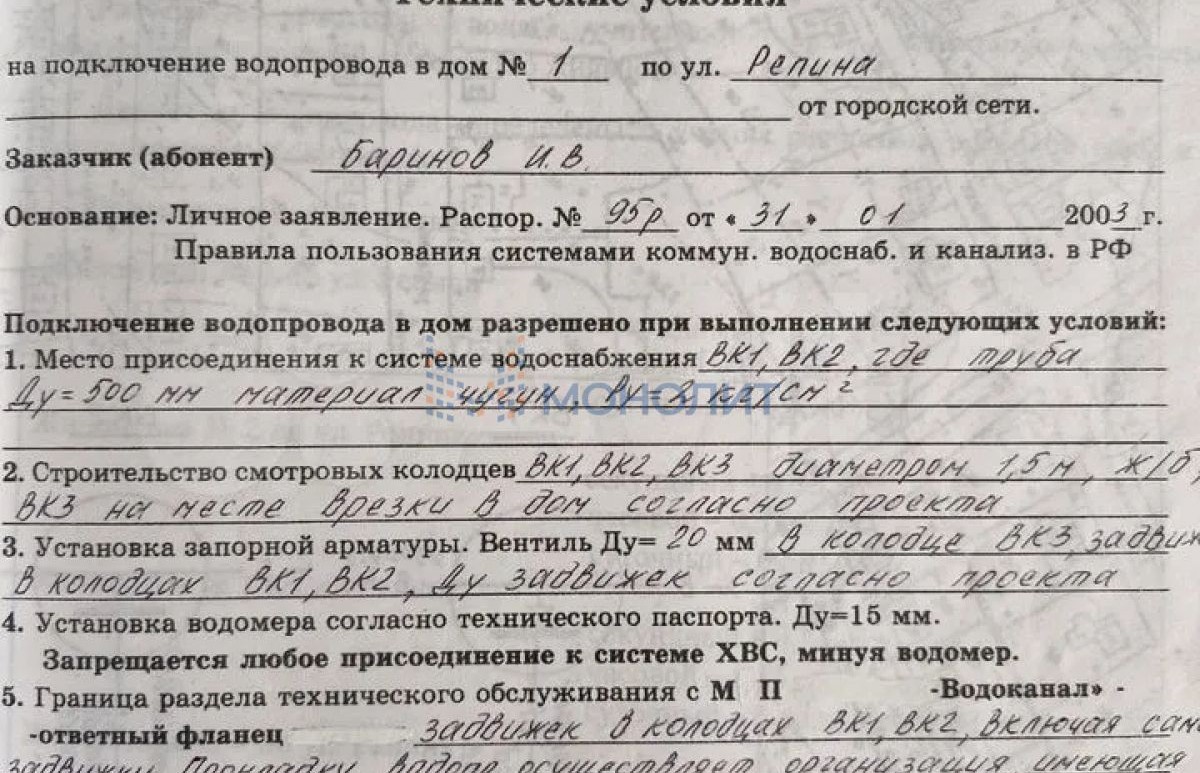 Технические условия
на подключение водопровода в дом № 1 по ул. Репина
от городской сети.
Заказчик (абонент) Баринов И.В.
Основание: Личное заявление. Распор. № 95р от «31» 01 2003 г.
Правила пользования системами коммун. водоснаб. и канализ. в РФ
Подключение водопровода в дом разрешено при выполнении следующих условий:
1. Место присоединения к системе водоснабжения ВК1, ВК2, где труба
Ду=500 мм материал чугун, Рv=2 кг/см²
МОНОЛИТ
2. Строительство смотровых колодцев ВК1, ВК2, ВК3 диаметром 1,5 м, ж/б,
ВК3 на месте врезки в дом согласно проекта
3. Установка запорной арматуры. Вентиль Ду= 20 мм в колодце ВК3, задвиж
в колодцах ВК1, ВК2, Ду задвижек согласно проекта
4. Установка водомера согласно технического паспорта. Ду=15 мм.
Запрещается любое присоединение к системе ХВС, минуя водомер.
5. Граница раздела технического обслуживания с М П -Водоканал» -
-ответный фланец задвижек в колодцах ВК1, ВК2, включая сам
задвижки. Прокладку водопр осуществляет организация имеющая